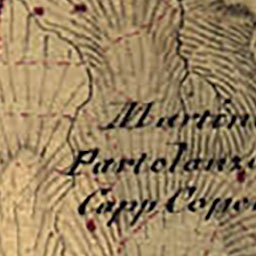 Martin
Partolanz
Capp Copo